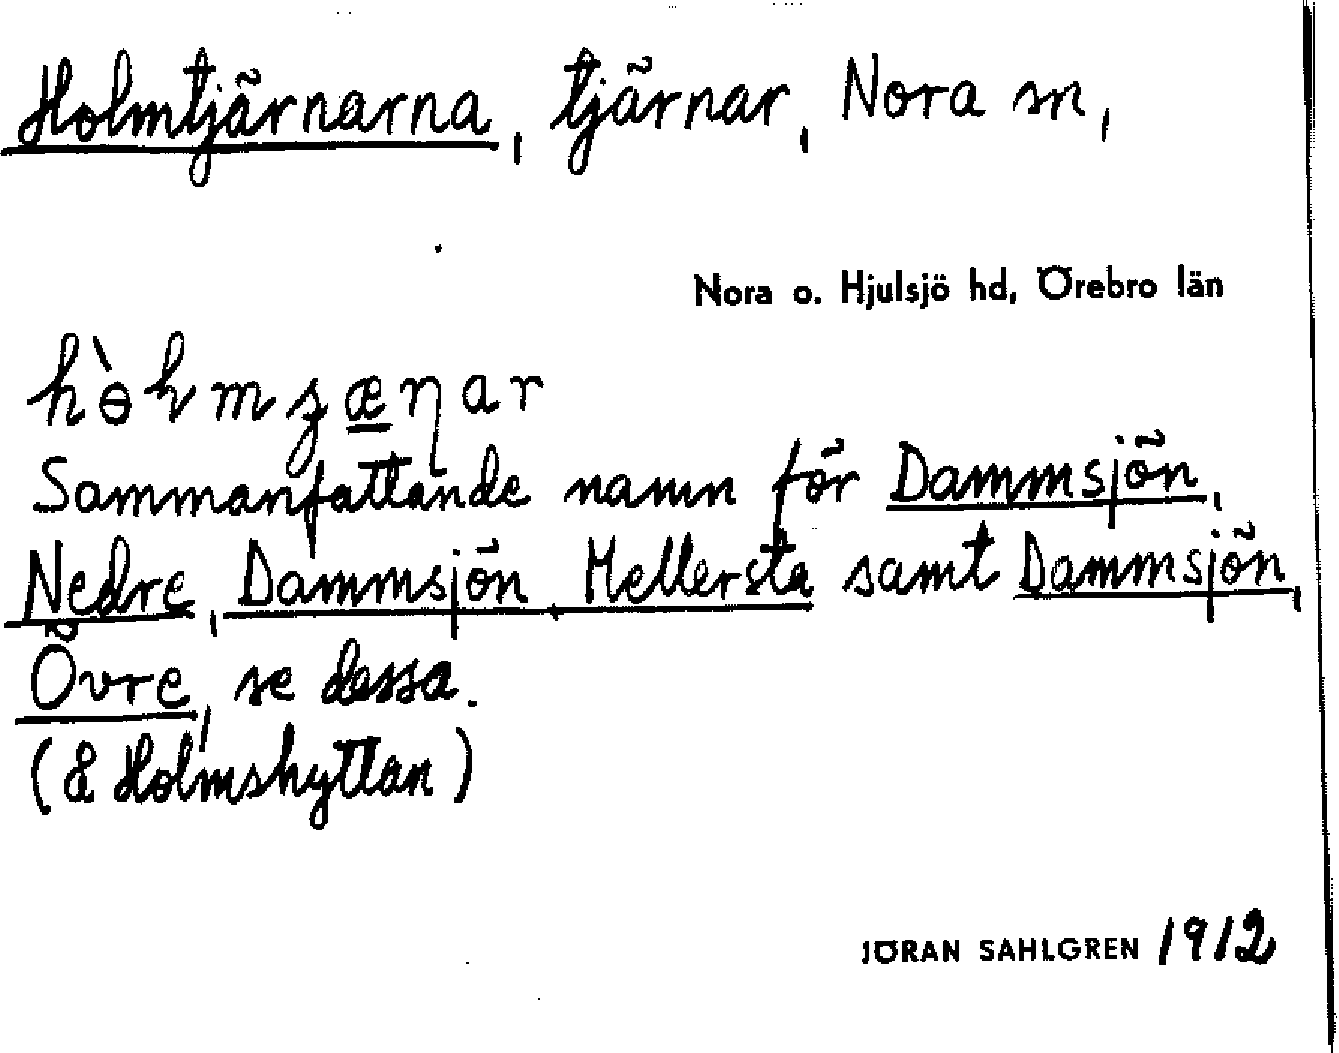 Holmtjärnarna, tjärnar, Nora sn,
Nora o. Hjulsjö hd, Örebro län
Sammanfattande namn för Dammsjön,
Nedre, Dammsjön, Mellersta samt Dammsjön,
Övre, se dessa.
(& Holmshyttan)
JÖRAN SAHLGREN 1912